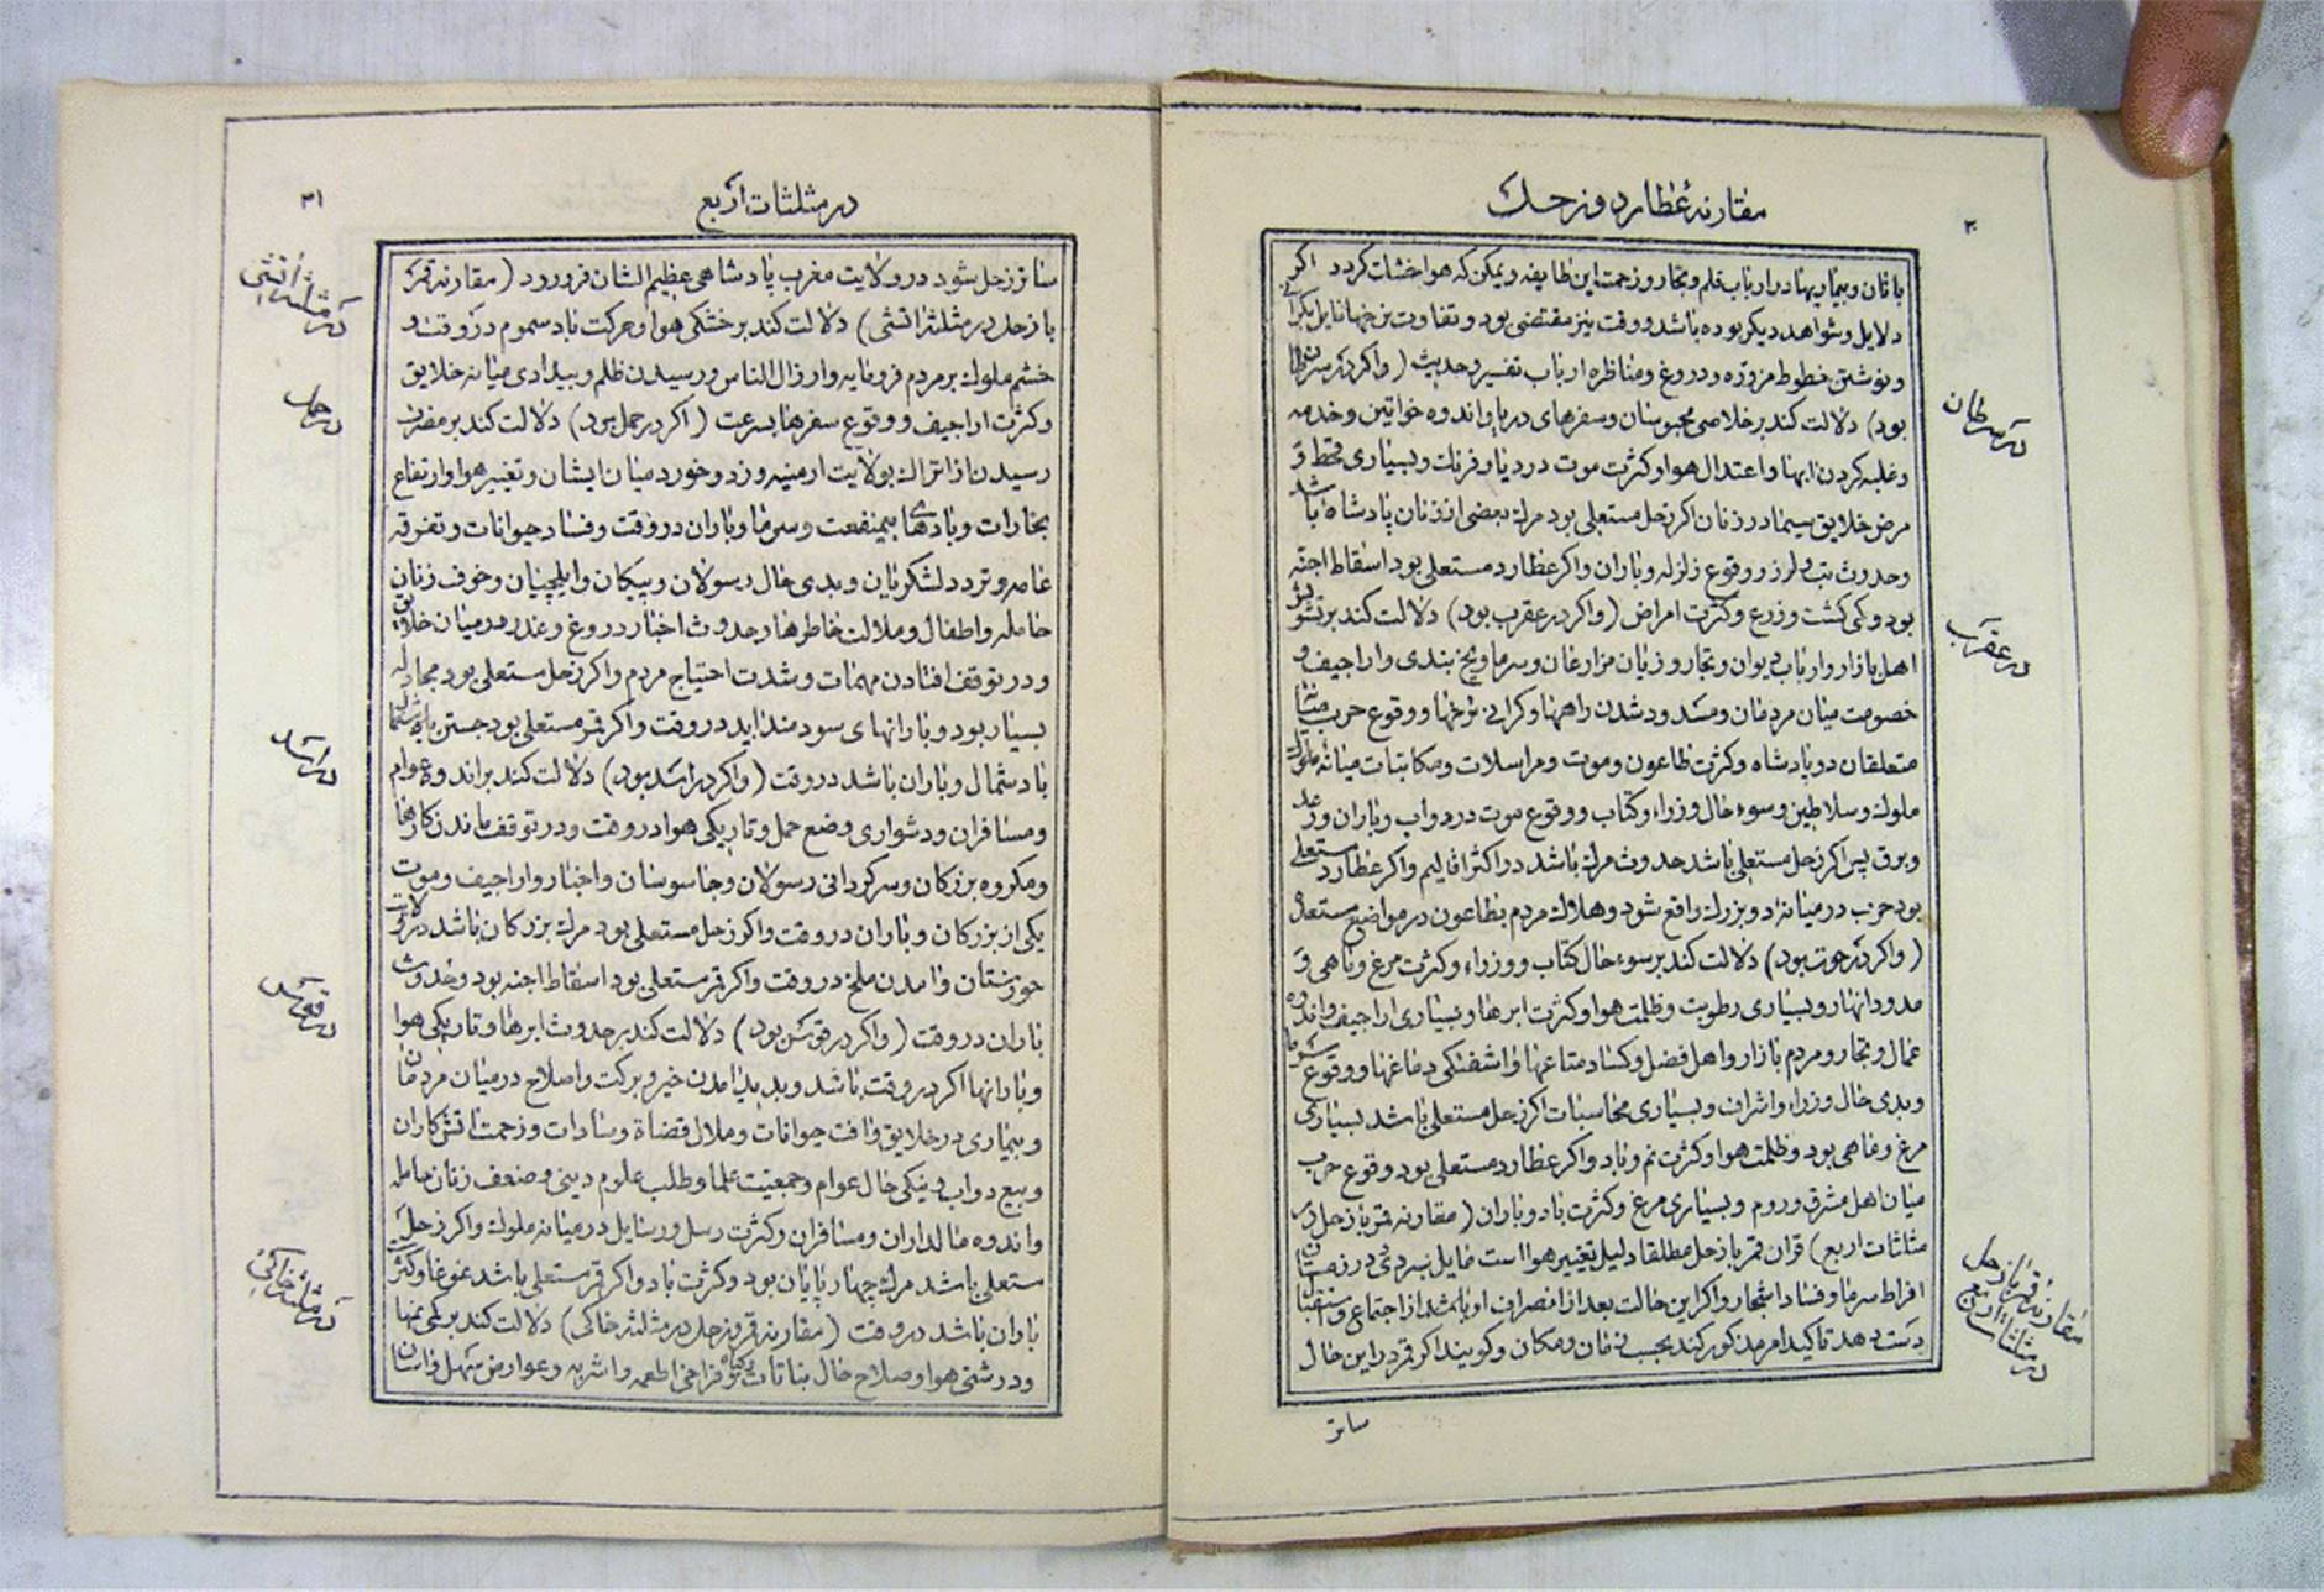 مقارنهٔ عطارد و زحل
۳۰
باتان و بیماریها در ارباب قلم و تجار و زحمت این طایفه و یمکن که هوا خشک کردد اکر
دلایل و شواهد دیکر بوده باشد و وقت نیز مقتضی بود و تفاوت نرخها مایل بکرانی
و نوشتن خطوط مزوره و دروغ و مناظره ارباب تفسیر و حدیث (و اکر در سرطان
بود) دلالت کند بر خلاصی محبوسان و سفرهای دریا و اندوه خواتین و خدمه
و غلبه کردن ابها و اعتدال هوا و کثرت موت در دنیا و فرنك و بسیاری قحط و
مرض خلایق سیما در زنان اکر زحل مستعلی بود مرك بعضی از زنان پادشاه باشد
و حدوث تب و لرز و وقوع زلزله و باران و اکر عطارد مستعلی بود اسقاط اجنه
بود و کمی کشت و زرع و کثرت امراض (و اکر در عقرب بود) دلالت کند بر تشویش
اهل بازار و ارباب دیوان و تجار و زیان مزارعان و سرما و یخ بندی و اراجیف و
خصومت میان مردمان و مسدود شدن راهها و کرانی نرخها و وقوع حرب میان
متعلقان دو پادشاه و کثرت طاعون و موت و مراسلات و مکاتبات میانهٔ ملوك
ملوك و سلاطین و سوء حال وزراء و کتاب و وقوع موت در دواب و باران و رعد
و برق پس اکر زحل مستعلی باشد حدوث مرك باشد در اکثر اقالیم و اکر عطارد مستعلی
بود حرب در میانهٔ دو بزرك واقع شود و هلاك مردم بطاعون در مواضع مستعد
(و اکر در حوت بود) دلالت کند بر سوء حال کتاب و وزراء و کثرت مرغ و ماهی و
مدود انهار و بسیاری رطوبت و ظلمت هوا و کثرت ابرها و بسیاری اراجیف و اندوه
عمال و تجار و مردم بازار و اهل فضل و کساد متاعها و اشفتکی دماغها و وقوع سرما
و بدی حال وزراء و اشراف و بسیاری محاسبات اکر زحل مستعلی باشد بسیاری
مرغ و ماهی بود و ظلمت هوا و کثرت نم و باد و اکر عطارد مستعلی بود وقوع حرب
میان اهل مشرق و روم و بسیاری مرغ و کثرت باد و باران (مقارنه قمر با زحل در
مثلثات اربع) قران قمر با زحل مطلقا دلیل تغییر هوا است مایل بسردی و در زمستان
افراط سرما و فساد اشجار و اکر این حالت بعد از انصراف او باشد از اجتماع و استقبال
دست دهد تاکید امر مذکور کند بحسب زمان و مکان و کویند اکر قمر در این حال
ساتر
در سرطان
در عقرب
مقارنه قمر با زحل
در مثلثات اربع
در مثلثات اربع
۳۱
ساتر زحل شود در ولایت مغرب پادشاهی عظیم الشان فرو رود (مقارنه قمر
با زحل در مثلثهٔ اتشی) دلالت کند بر خشکی هوا و حرکت باد سموم در وقت و
خشم ملوك بر مردم فرومایه و ارذال الناس و رسیدن ظلم و بیدادی میانه خلایق
و کثرت اراجیف و وقوع سفرها بسرعت (اکر در حمل بود) دلالت کند بر مضرت
رسیدن از اتراك بولایت ارمنیه و زد و خورد میان ایشان و تغییر هوا و ارتفاع
بخارات و بادهای بیمنفعت و سرما و باران در وقت و فساد حیوانات و تفرقه
عامه و تردد لشکریان و بدی حال رسولان و پیکان و ایلچیان و خوف زنان
حامله و اطفال و ملالت خاطرها و حدوث اخبار دروغ و غدر در میان خلایق
و در توقف افتادن مهمات و شدت احتیاج مردم و اکر زحل مستعلی بود مجادله
بسیار بود و بارانهای سودمند اید در وقت و اکر قمر مستعلی بود جستن
باد شمال و باران باشد در وقت (و اکر در اسد بود) دلالت کند بر اندوه عوام
و مسافران و دشواری وضع حمل و تاریکی هوا در وقت و در توقف ماندن کارها
و مکروه بزرکان و سرکردانی رسولان و جاسوسان و اخبار و اراجیف و موت
یکی از بزرکان و باران در وقت و اکر زحل مستعلی بود مرك بزرکان باشد در ولایت
خوزستان و امدن ملخ در وقت و اکر قمر مستعلی بود اسقاط اجنه بود و حدوث
باران در وقت (و اکر در قوس بود) دلالت کند بر حدوث ابرها و تاریکی هوا
و بارانها اکر در وقت باشد و پدید امدن خیر و برکت و اصلاح در میان مردمان
و بیماری در خلایق و افت حیوانات و ملال قضاة و سادات و زحمت اتش کاران
و بیع دواب و نیکی حال عوام و جمعیت علما و طلب علوم دینی و ضعف زنان حامله
و اندوه مالداران و مسافران و کثرت رسل و رسایل در میانه ملوك و اکر زحل
مستعلی باشد مرك چهارپایان بود و کثرت باد و اکر قمر مستعلی باشد غوغا و کثرت
باران باشد در وقت (مقارنه قمر و زحل در مثلثهٔ خاکی) دلالت کند بر کمی نمها
و درشتی هوا و صلاح حال نباتات و فراخی اطعمه و اشربه و عوارض سهل و اسان
در مثلثهٔ اتشی
در حمل
در اسد
در قوس
در مثلثهٔ خاکی